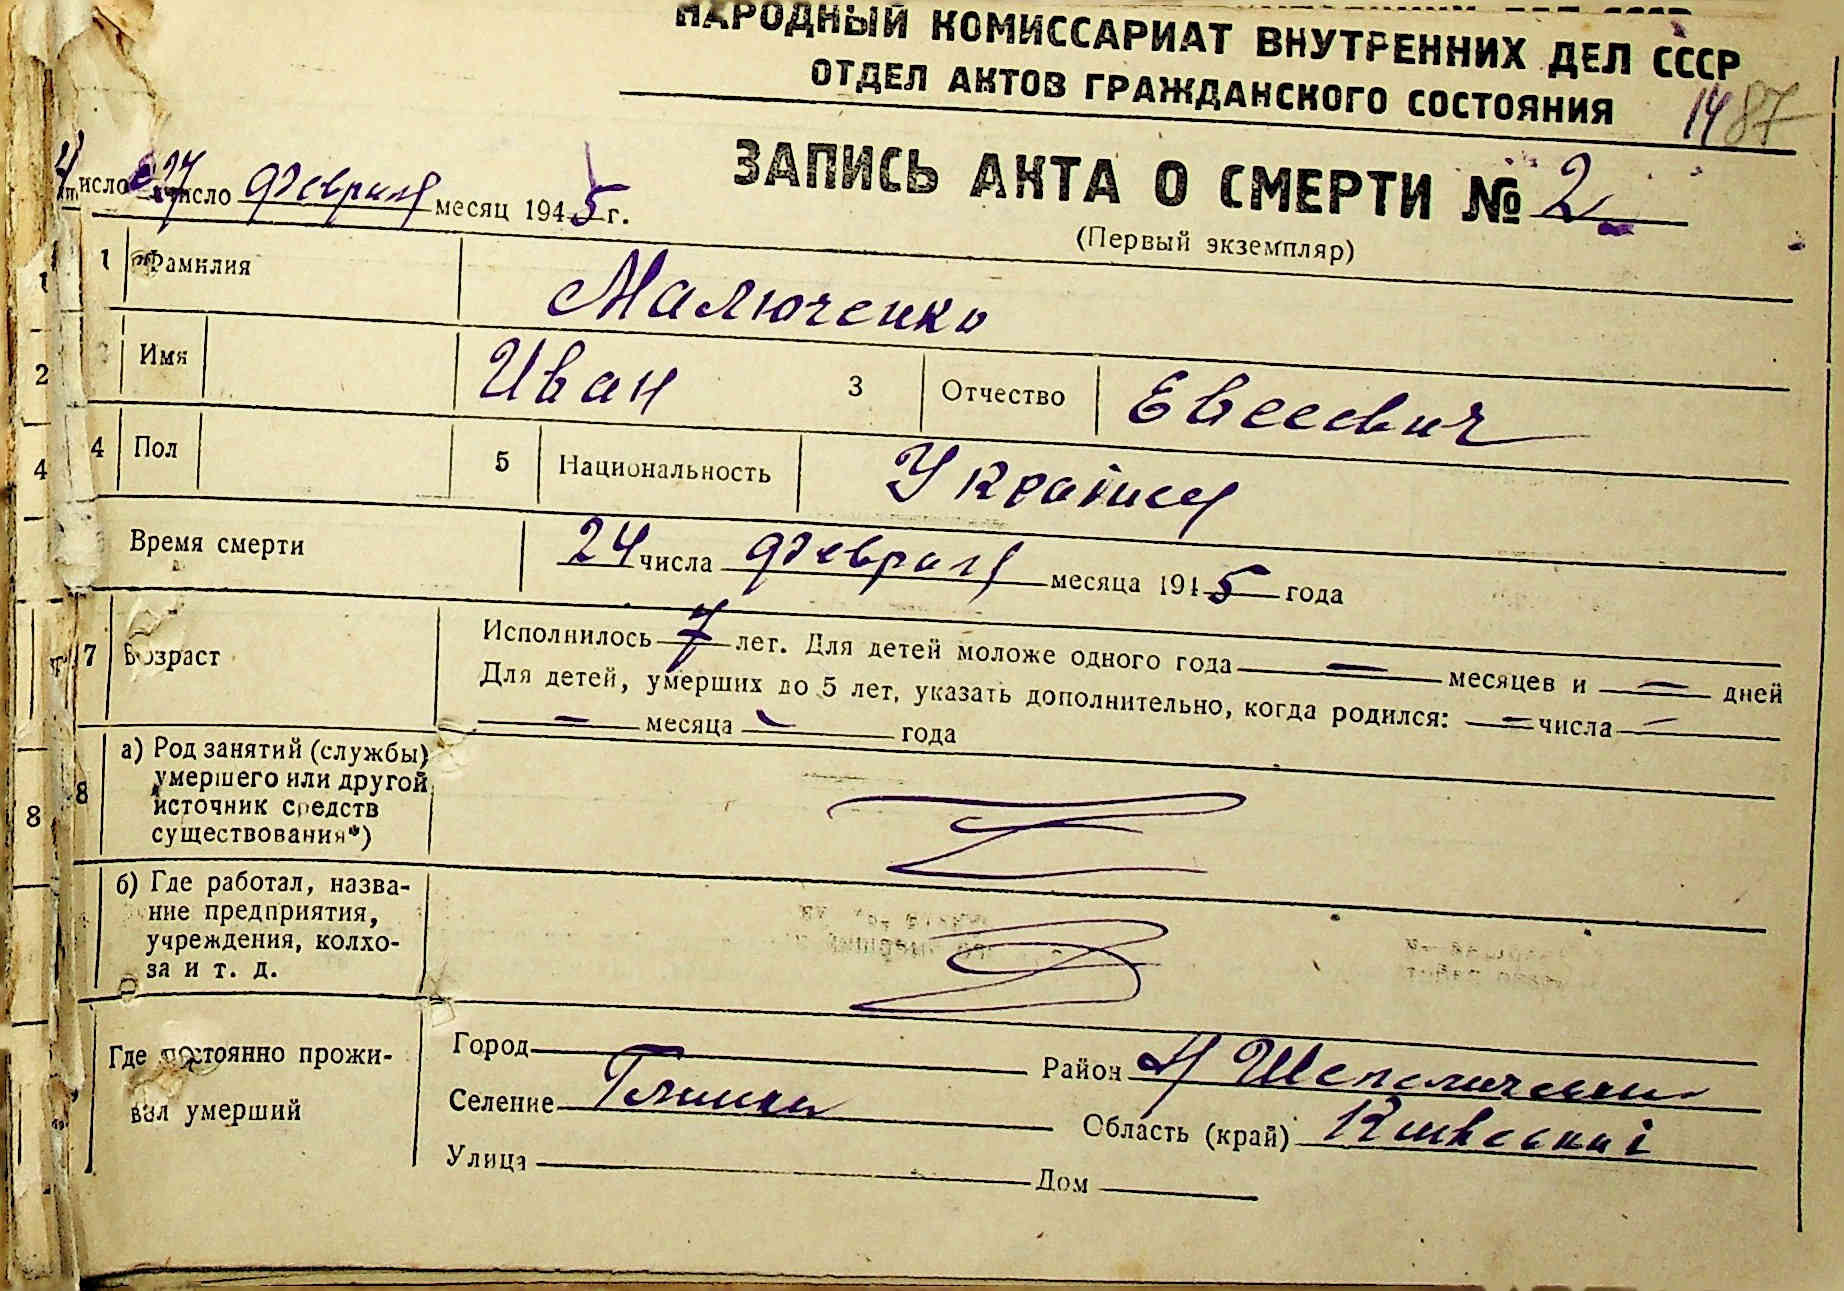 НАРОДНЫЙ КОМИССАРИАТ ВНУТРЕННИХ ДЕЛ СССР
ОТДЕЛ АКТОВ ГРАЖДАНСКОГО СОСТОЯНИЯ
14 87
ЗАПИСЬ АКТА О СМЕРТИ № 2
27 число февраля месяц 1945 г.
(Первый экземпляр)
1 Фамилия Малюченко
Имя Иван 3 Отчество Евсеевич
4 Пол 5 Национальность Україниця
Время смерти 24 числа февраля месяца 1945 года
7 Возраст Исполнилось 7 лет. Для детей моложе одного года — месяцев и — дней
Для детей, умерших до 5 лет, указать дополнительно, когда родился: — числа —
— месяца — года
8 а) Род занятий (службы)
умершего или другой
источник средств
существования*)
б) Где работал, назва-
ние предприятия,
учреждения, колхо-
за и т. д.
Где постоянно прожи-
вал умерший
Город Район Н Шепеличский
Селение Глинка Область (край) Киевскаї
Улица Дом
1
2
4
8